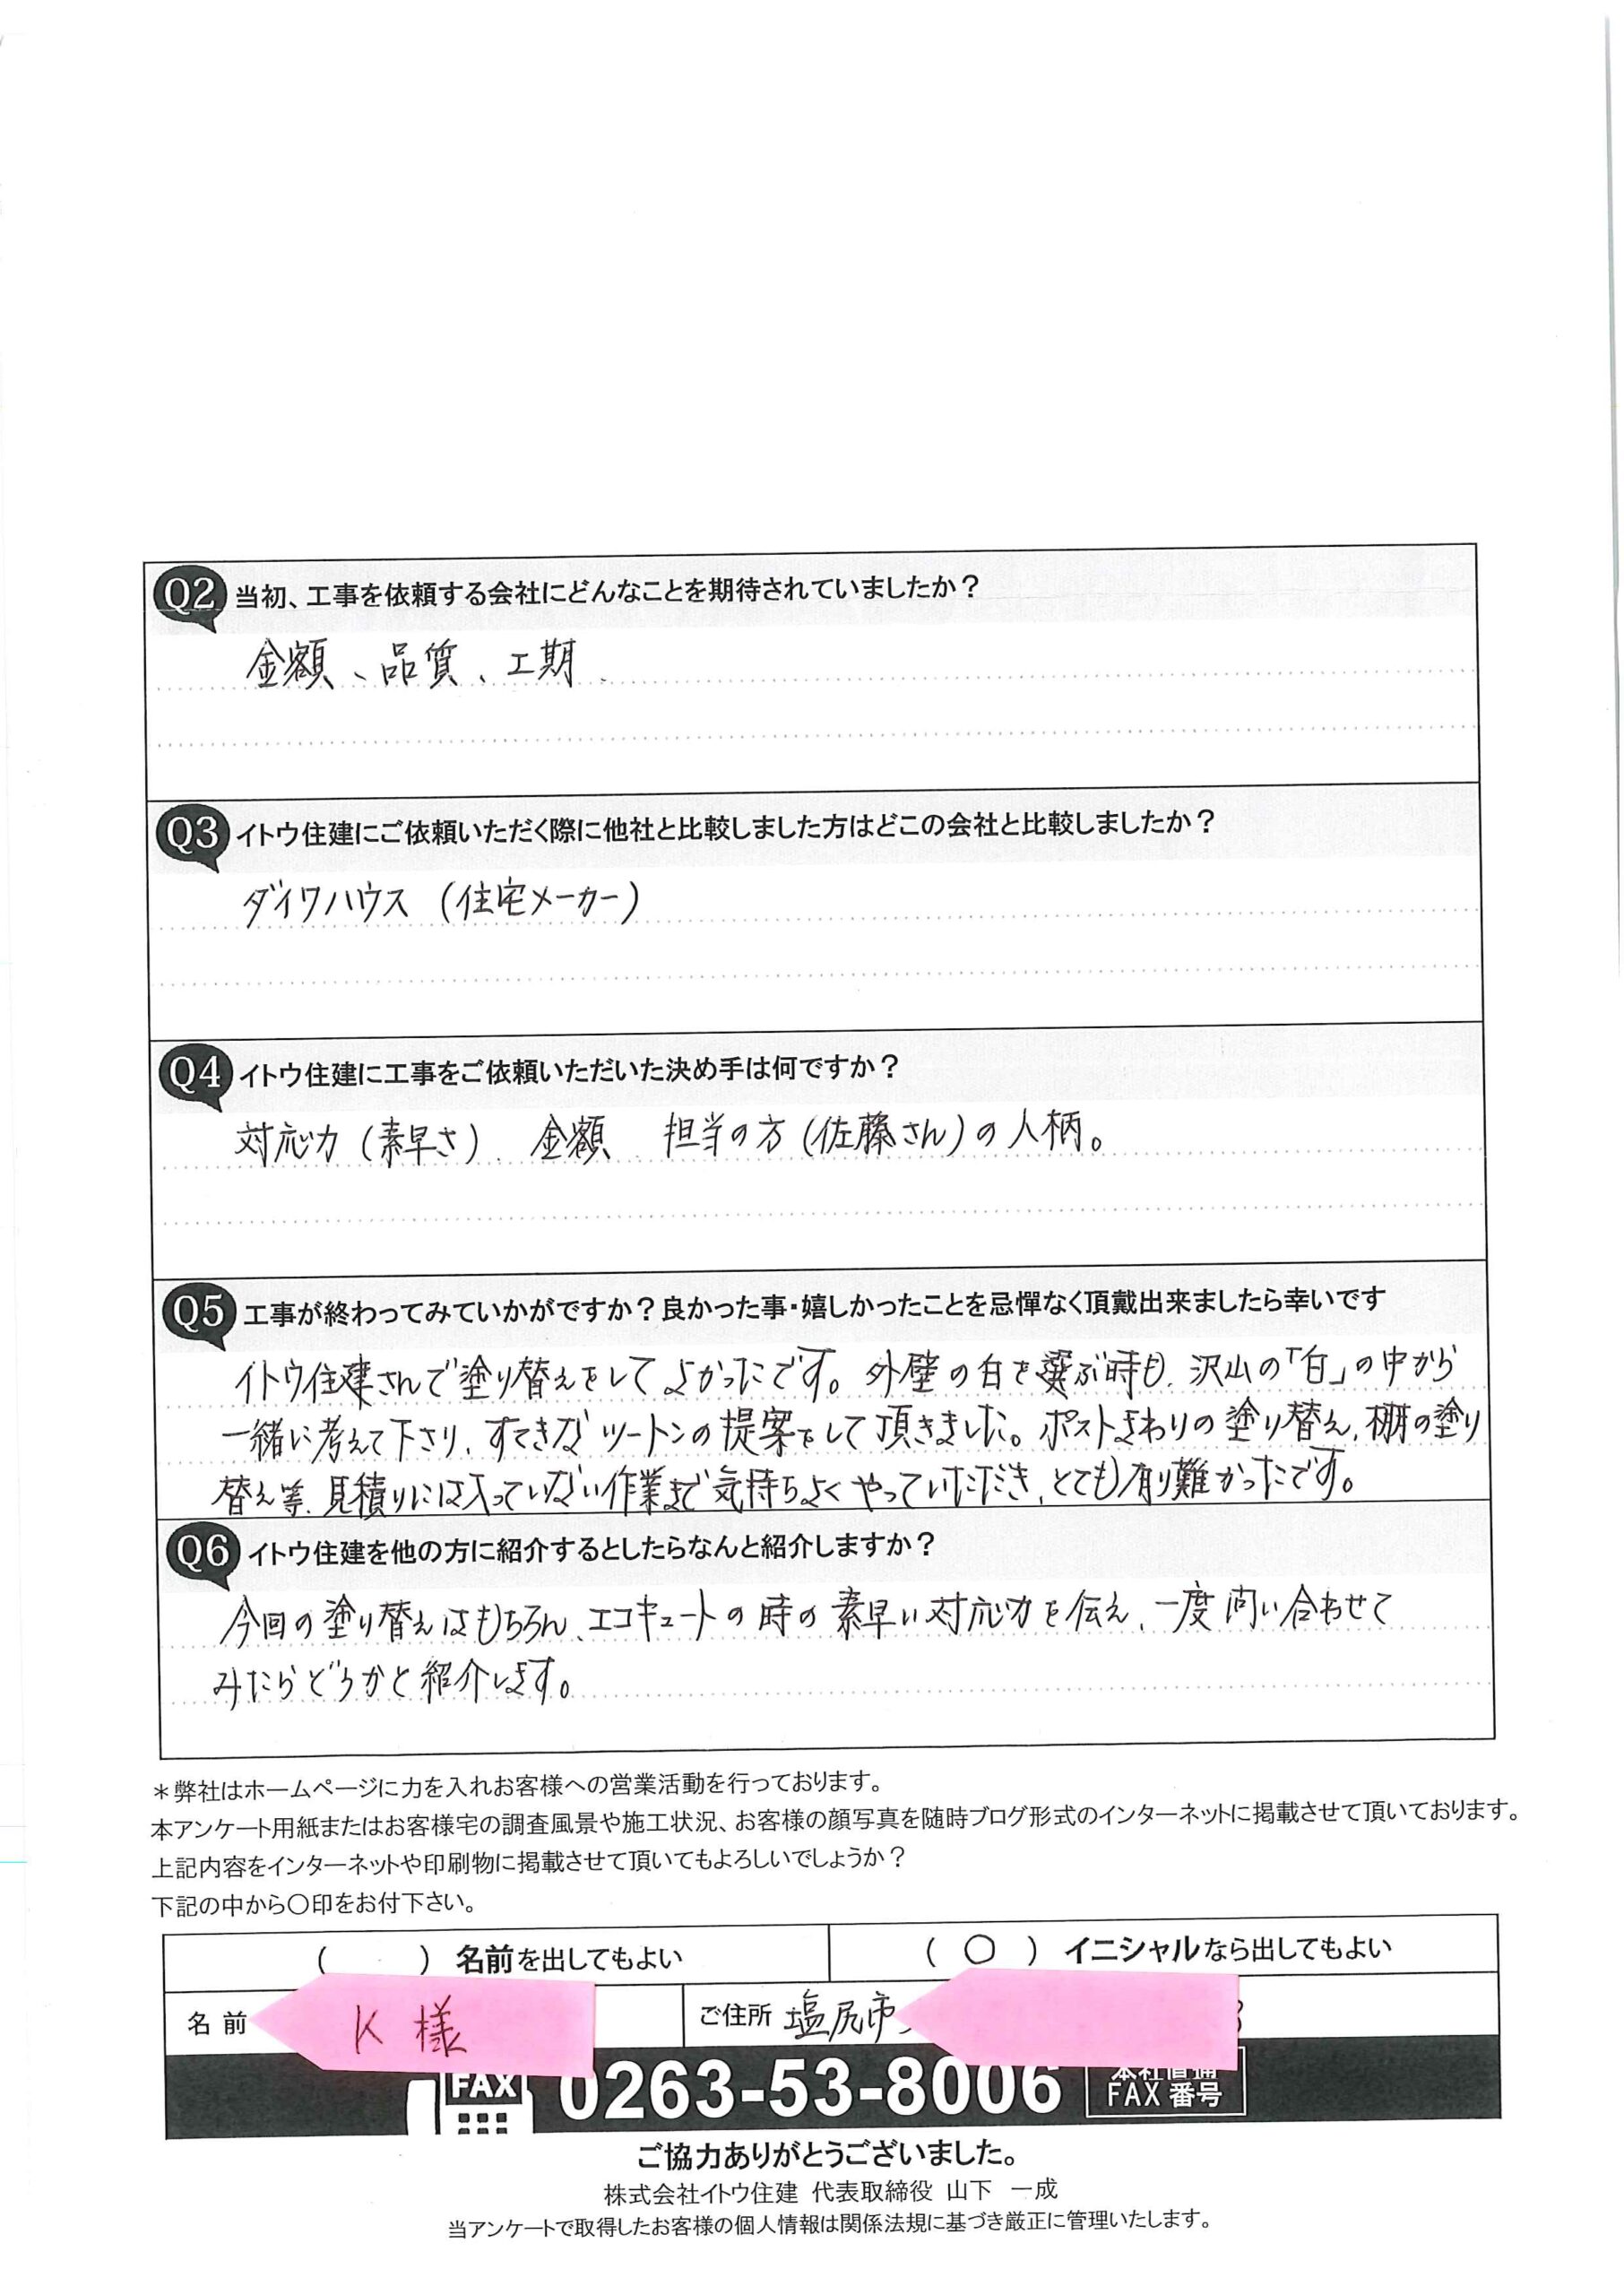 Q2 当初、工事を依頼する会社にどんなことを期待されていましたか？
金額、品質、工期.
Q3 イトウ住建にご依頼いただく際に他社と比較しました方はどこの会社と比較しましたか？
ダイワハウス（住宅メーカー）
Q4 イトウ住建に工事をご依頼いただいた決め手は何ですか？
対応力（素早さ）、金額、担当の方（佐藤さん）の人柄。
Q5 工事が終わってみていかがですか？良かった事・嬉しかったことを忌憚なく頂戴出来ましたら幸いです
イトウ住建さんで塗り替えをしてよかったです。外壁の白を選ぶ時も、沢山の「白」の中から
一緒に考えて下さり、すてきなツートンの提案をして頂きました。ポストまわりの塗り替え、棚の塗り
替え等、見積りには入っていない作業まで気持ちよくやっていただき、とても有り難かったです。
Q6 イトウ住建を他の方に紹介するとしたらなんと紹介しますか？
今回の塗り替えはもちろん、エコキュートの時の素早い対応力を伝え、一度問い合わせて
みたらどうかと紹介します。
＊弊社はホームページに力を入れお客様への営業活動を行っております。
本アンケート用紙またはお客様宅の調査風景や施工状況、お客様の顔写真を随時ブログ形式のインターネットに掲載させて頂いております。
上記内容をインターネットや印刷物に掲載させて頂いてもよろしいでしょうか？
下記の中から〇印をお付下さい。
（　　）名前を出してもよい （ 〇 ）イニシャルなら出してもよい
名前 K 様 ご住所 塩尻市
FAX 0263-53-8006 本社直通
FAX 番号
ご協力ありがとうございました。
株式会社イトウ住建 代表取締役 山下 一成
当アンケートで取得したお客様の個人情報は関係法規に基づき厳正に管理いたします。